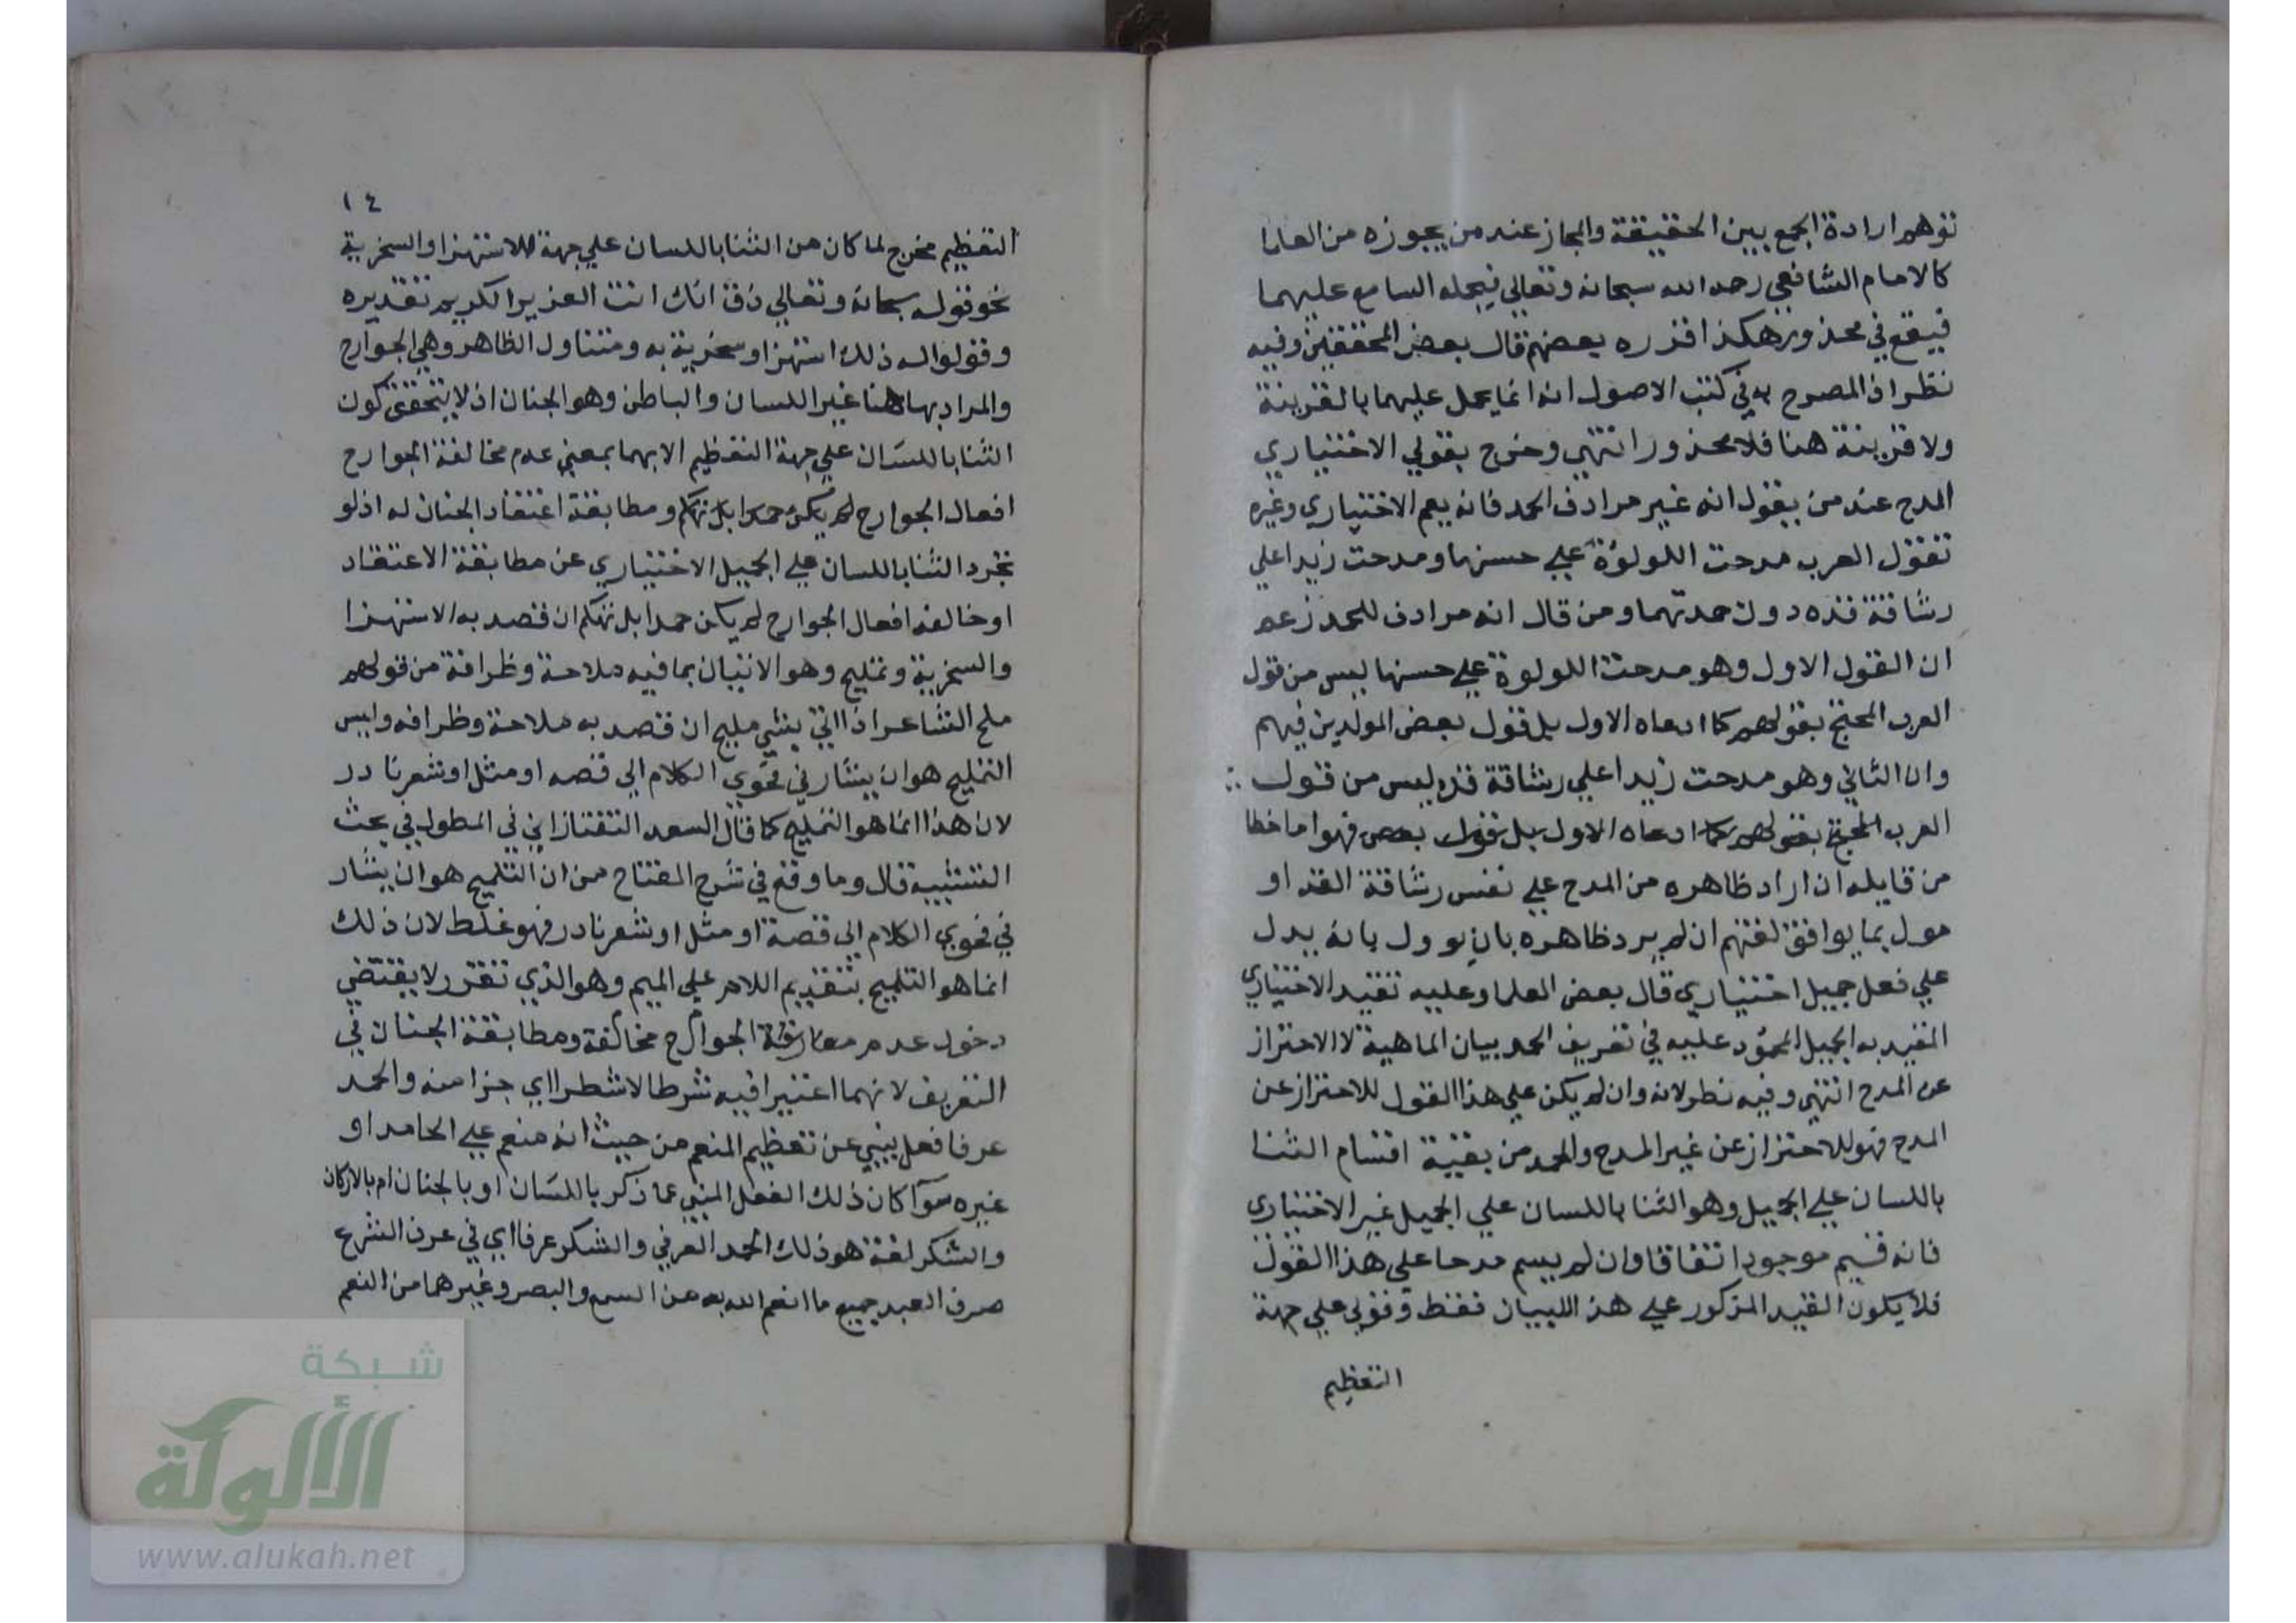 توهم ارادة الجمع بين الحقيقة والمجاز عند من يجوزه من العلما
كالامام الشافعي رحمه الله سبحانه وتعالي فيحمله السامع عليهما
فيقع في محذور هكذا قرره بعضهم قال بعض المحققين وفيه
نظر اذ المصرح به في كتب الاصول انه انما يحمل عليهما بالقرينة
ولا قرينة هنا فلا محذور انتهي وخرج بقولي الاختياري
المدح عند من يقول انه غير مرادف الحمد فانه يعم الاختياري وغيره
تقول العرب مدحت اللولوة علي حسنها ومدحت زيدا علي
رشاقة قده دون حمدتهما ومن قال انه مرادف للحمد زعم
ان القول الاول وهو مدحت اللولوة علي حسنها ليس من قول
العرب المحتج بقولهم كما ادعاه الاول بل قول بعض المولدين فيهم
وان الثاني وهو مدحت زيدا علي رشاقة قده ليس من قول
العرب المحتج بقولهم كما ادعاه الاول بل قول بعض فهو اما خطا
من قايله ان اراد ظاهره من المدح علي نفس رشاقة القد او
مول بما يوافق لغتهم ان لم يرد ظاهره بان يوول بانه يدل
علي فعل جميل اختياري قال بعض العلما وعليه تقيد الاختياري
المقيد به الجميل المحمود عليه في تعريف الحمد بيان الماهية لا الاحتراز
عن المدح انتهي وفيه نظر لانه وان لم يكن علي هذا القول للاحتراز عن
المدح فهو للاحتراز عن غير المدح والحمد من بقية اقسام الثنا
باللسان علي الجميل وهو الثنا باللسان علي الجميل غير الاختياري
فانه قسيم موجود اتفاقا وان لم يسم مدحا علي هذا القول
فلا يكون القيد المذكور علي هذ اللبيان فقط وقولي علي جهة
التعظيم
١٤
التعظيم مخرج لما كان من الثنا باللسان علي جهة الاستهزا والسخرية
نحو قوله سبحانه وتعالي ذق انك انت العزيز الكريم تقديره
وقولوا له ذلك استهزا وسخرية به ومتناول الظاهر وهي الجوارح
والمراد بها هنا غير اللسان والباطن وهو الجنان اذ لا يتحقق كون
الثنا باللسان علي جهة التعظيم الا بهما بمعني عدم مخالفة الجوارح
افعال الجوارح لم يكن حمدا بل تهكم ومطابقة اعتقاد الجنان له اذ لو
تجرد الثنا باللسان علي الجميل الاختياري عن مطابقة الاعتقاد
او خالفه افعال الجوارح لم يكن حمدا بل تهكم ان قصد به الاستهزا
والسخرية وتمليح وهو الاتيان بما فيه ملاحة وظرافة من قولهم
ملح الشاعر اذا اتي بشي مليح ان قصد به ملاحة وظرافه وليس
التمليح هو ان يشار في فحوي الكلام الي قصه او مثل او شعر نادر
لان هذا انما هو التمليح كما قال السعد التفتازاني في المطول في بحث
التشبيه قال وما وقع في شرح المفتاح من ان التلميح هو ان يشار
في فحوي الكلام الي قصة او مثل او شعر نادر فهو غلط لان ذلك
انما هو التلميح بتقديم اللام علي الميم وهو الذي تقرر لا يقتضي
دخول عدم الجوارح مخالفة ومطابقة الجنان في
التعريف لانهما اعتبرا فيه شرطا لا شطرا اي جزا منه والحمد
عرفا فعل ينبي عن تعظيم المنعم من حيث انه منعم علي الحامد او
غيره سوآ كان ذلك الفعل المنبي عما ذكر باللسان او بالجنان ام بالاركان
والشكر لغة هو ذلك الحمد العرفي والشكر عرفا اي في عرف الشرع
صرف العبد جميع ما انعم الله به من السمع والبصر وغيرهما من النعم
شبكة
الألوكة
www.alukah.net